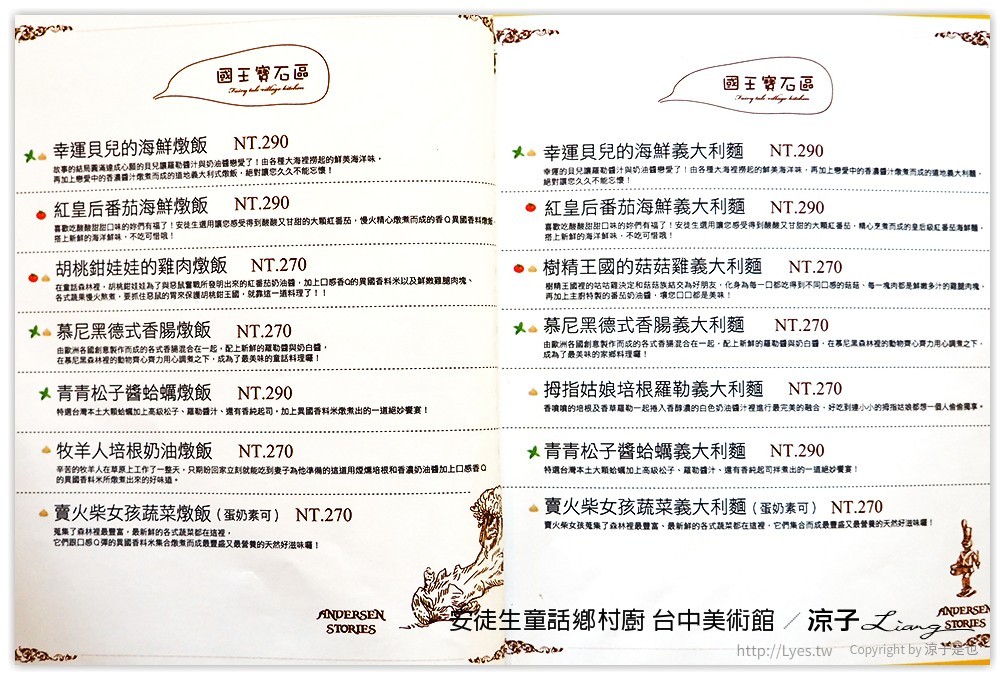 國王寶石區
Fairy tale village kitchen
幸運貝兒的海鮮燉飯 NT.290
故事的結局圓滿達成心願的貝兒讓羅勒醬汁與奶油醬戀愛了！由各種大海裡撈起的鮮美海洋味，
再加上戀愛中的香濃醬汁燉煮而成的道地義大利式燉飯，絕對讓您久久不能忘懷！
紅皇后番茄海鮮燉飯 NT.290
喜歡吃酸酸甜甜口味的妳們有福了！安徒生選用讓您感受得到酸酸又甘甜的大顆紅番茄，慢火精心燉煮而成的香Q異國香料燉飯
搭上新鮮的海洋鮮味，不吃可惜哦！
胡桃鉗娃娃的雞肉燉飯 NT.270
在童話森林裡，胡桃鉗娃娃為了與惡鼠奮戰所發明出來的紅番茄奶油醬，加上口感香Q的異國香料米以及鮮嫩雞腿肉塊、
各式蔬果慢火熬煮，要抓住惡鼠的胃來保護胡桃鉗王國，就靠這一道料理了！！
慕尼黑德式香腸燉飯 NT.270
由歐洲各國創意製作而成的各式香腸混合在一起，配上新鮮的羅勒醬與奶白醬，
在慕尼黑森林裡的動物齊心齊力用心調煮之下，成為了最美味的童話料理囉！
青青松子醬蛤蠣燉飯 NT.290
特選台灣本土大顆蛤蠣加上高級松子、羅勒醬汁、還有香純起司，加上異國香料米燉煮出的一道絕妙饗宴！
牧羊人培根奶油燉飯 NT.270
辛苦的牧羊人在草原上工作了一整天，只期盼回家立刻就能吃到妻子為他準備的這道用煙燻培根和香濃奶油醬加上口感香Q
的異國香料米所燉煮出來的好味道。
賣火柴女孩蔬菜燉飯（蛋奶素可） NT.270
蒐集了森林裡最豐富，最新鮮的各式蔬菜都在這裡，
它們跟口感Q彈的異國香料米集合燉煮而成最豐盛又最營養的天然好滋味囉！
ANDERSEN
STORIES
國王寶石區
Fairy tale village kitchen
幸運貝兒的海鮮義大利麵 NT.290
幸運的貝兒讓羅勒醬汁與奶油醬戀愛了！由各種大海裡撈起的鮮美海洋味，再加上戀愛中的香濃醬汁燉煮而成的道地義大利麵，
絕對讓您久久不能忘懷！
紅皇后番茄海鮮義大利麵 NT.290
喜歡吃酸酸甜甜口味的妳們有福了！安徒生選用讓您感受得到酸酸又甘甜的大顆紅番茄，精心烹煮而成的皇后級紅番茄海鮮麵，
搭上新鮮的海洋鮮味，不吃可惜哦！
樹精王國的菇菇雞義大利麵 NT.270
樹精王國裡的咕咕雞決定和菇菇族結交為好朋友，化身為每一口都吃得到不同口感的菇菇、每一塊肉都是鮮嫩多汁的雞腿肉塊，
再加上主廚特製的番茄奶油醬，讓您口口都是美味！
慕尼黑德式香腸義大利麵 NT.270
由歐洲各國創意製作而成的各式香腸混合在一起，配上新鮮的羅勒醬與奶白醬，在慕尼黑森林裡的動物齊心齊力用心調煮之下，
成為了最美味的家鄉料理囉！
拇指姑娘培根羅勒義大利麵 NT.270
香噴噴的培根及香草羅勒一起捲入香醇濃的白色奶油醬汁裡進行最完美的融合，好吃到連小小的拇指姑娘都想一個人偷偷獨享。
青青松子醬蛤蠣義大利麵 NT.290
特選台灣本土大顆蛤蠣加上高級松子、羅勒醬汁、還有香純起司拌煮出的一道絕妙饗宴！
賣火柴女孩蔬菜義大利麵（蛋奶素可） NT.270
賣火柴女孩蒐集了森林裡最豐富、最新鮮的各式蔬菜都在這裡，它們集合而成最豐盛又最營養的天然好滋味囉！
ANDERSEN
STORIES
安徒生童話鄉村廚 台中美術館 ／涼子 Liang
http://Lyes.tw Copyright by 涼子是也